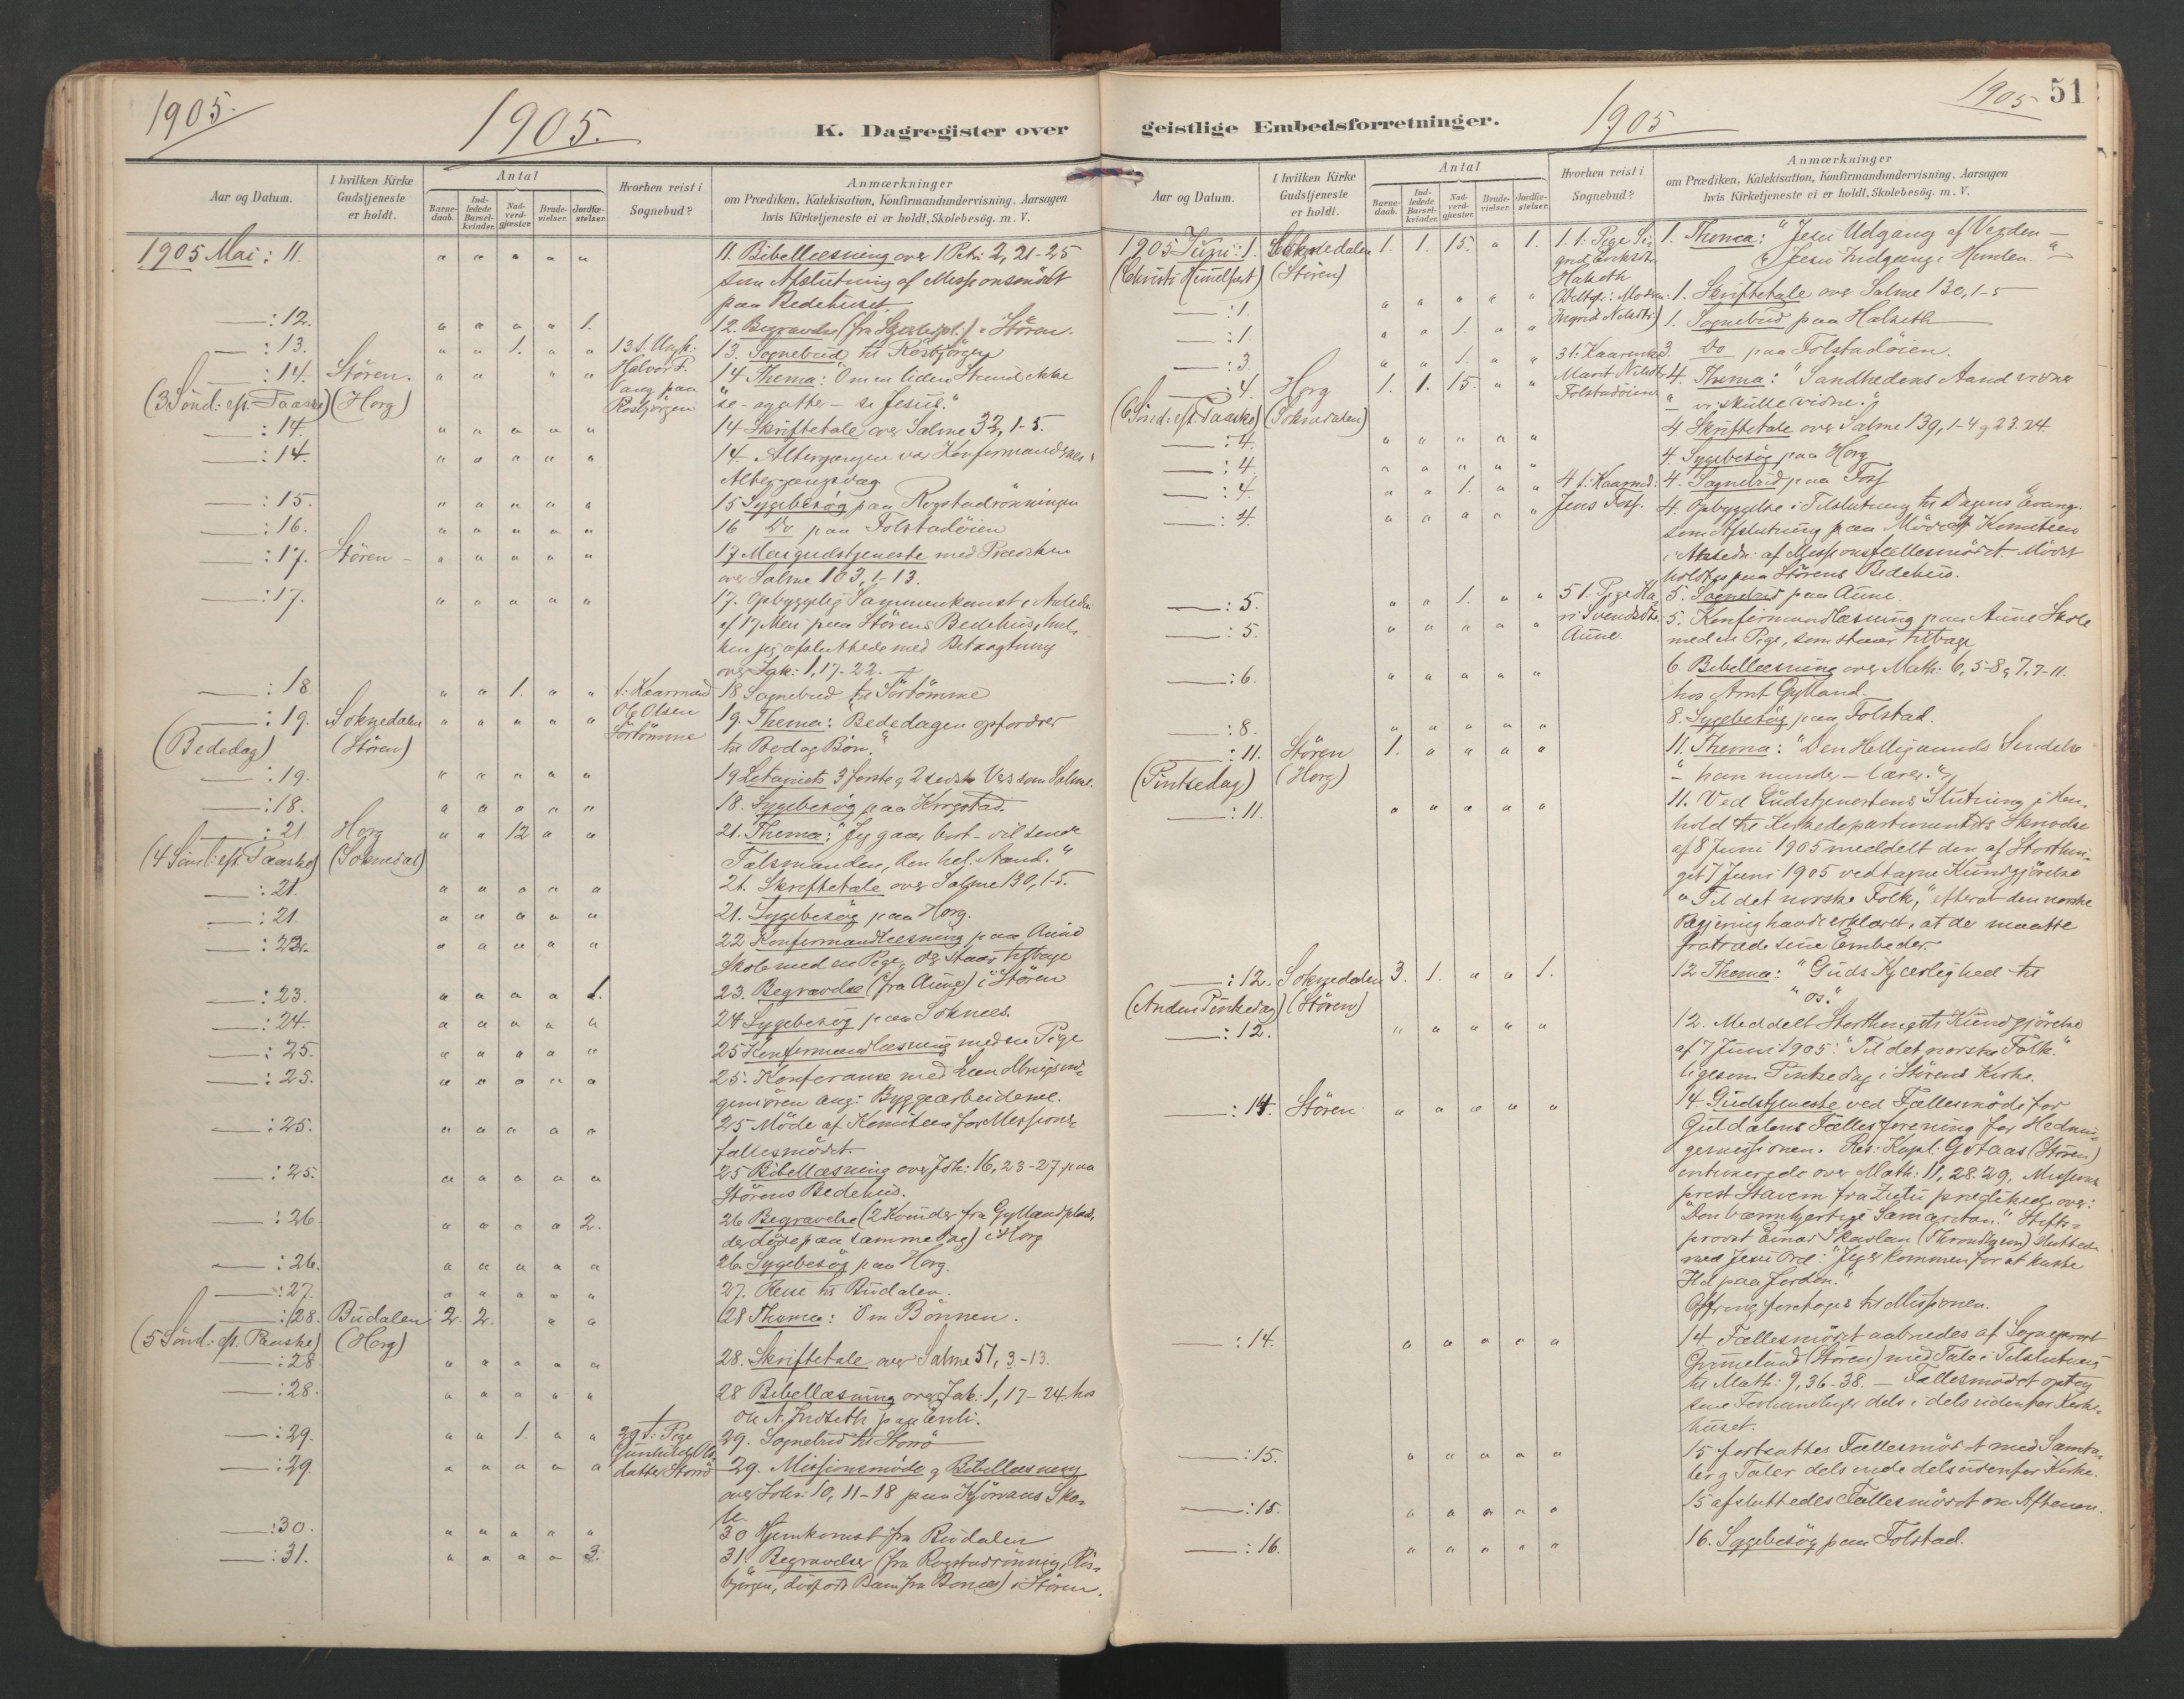 1905.
1905.
K. Dagregister over
Aar og Datum.
I hvilken Kirke Gudstjeneste er holdt.
Antal
Barne-daab.
Ind-ledede Barsel-kvinder.
Nad-verd-gjæster.
Brude-vielser.
Jordfæ-stelser.
Hvorhen reist i Sognebud?
Anmærkninger
om Prædiken, Katekisation, Konfirmandundervisning, Aarsagen
hvis Kirketjeneste ei er holdt, Skolebesög. m. V.
1905 Mai: 11. " " " " " 11. Bibellæsning over 1 Petr: 2, 21-25
som Afslutning af Missionsmödet
paa Bedehuset.
: 12. " " " " 1. 12. Begravelse i Stören.
: 13. " " 1. " " 13. Sognebud til Rosbjörgen
Halvor P. Vang paa Rosbjörgen
: 14. Stören. " " " " 14 Thema: "Om en liden Stund ikke
(3 Sönd: eft. Paaske) (Horg) se - og atter - se Jesus."
: 14. " " " " " 14 Skriftetale over Salme 32, 1-5.
: 14. " " " " " 14. Altergangen var Konfirmandernes
Altergangsdag
: 15. " " " " " 15 Sygebesög paa Rogstadrönningen
: 16. " " " " " 16 Do paa Folstadöien
: 17. Stören - " " " " " 17 Maigudstjeneste med Prædiken
over Salme 103, 1-13.
: 17. " " " " " 17. Opbyggelig Sammenkomst i Anledn:
af 17 Mai paa Störens Bedehus, hvil-
ken jeg afsluttede med Betragtning
over Jak: 1, 17-22.
: 18. " " 1. " " 1: Kaarmand Ole Olsen
18 Sognebud til
: 19. Soknedalen " " " " " 19. Thema: "Bededagen opfordrer
(Bededag) (Stören) til Bod og Bön."
: 19. " " " " " 19 Letaniets 3 förste og 2 sidste Vers som Salme.
: 18. " " " " " 18. Sygebesög paa Krogstad.
: 21. Horg " " 12 " " 21. Thema: "Jeg gaar bort - vil sende
(4 Sönd: eft. Paaske) (Soknedal) Talsmanden, den hel. Aand."
: 21. " " " " " 21. Skriftetale over Salme 130, 1-5.
: 21. " " " " " 21. Sygebesög paa Horg.
: 22. " " " " " 22 Konfirmandlæsning paa Aune
Skole med en Pige, der staar tilbage
: 23. " " " " 1. 23. Begravelse (fra Aune) i Stören
: 24. " " " " " 24 Sygebesög paa Soknæs.
: 25. " " " " " 25 Konfirmandlæsning med en Pige
: 25. " " " " " 25. Konferanse med
geniören ang: Byggearbeiderne.
: 25. " " " " " 25 Möde af Komiteen for Missions-
fællesmödet.
: 25. " " " " " 25 Bibellæsning over Joh: 16, 23-27 paa
Störens Bedehus.
: 26 " " " " 2. 26 Begravelse (2 Kvinder fra Gyllandplads,
der döde paa samme Dag) i Horg
: 26. " " " " " 26. Sygebesög paa Horg.
: 27. " " " " " 27. Reise til Budalen.
: 28. Budalen 2. 2. " " 28 Thema: Om Bönnen.
(5 Sönd: eft. Paaske) (Horg)
: 28 " " " " " 28. Skriftetale over Salme 51, 3-13.
: 28. " " " " " 28 Bibellæsning over Jak: 1, 17-24 hos
Ole N. Indseth paa Enli.
: 29. " " 1. " " 29 1: Pige Gunhild Ols-datter Storrö
29. Sognebud til Storrö
: 29. " " " " " 29. Missionsmöde og Bibellæsning
over Joh: 10, 11-18 paa Kjörvans Sko-
le.
: 30. " " " " " 30 Hjemkomst fra Budalen
: 31. " " " " 3. 31 Begravelser (fra Rogstadrönning, Ros-
björgen, dödfödt Barn fra Bones) i Stören.
geistlige Embedsforretninger.
1905
1905
51
Aar og Datum.
I hvilken Kirke Gudstjeneste er holdt.
Antal
Barne-daab.
Ind-ledede Barsel-kvinder.
Nad-verd-gjæster.
Brude-vielser.
Jordfæ-stelser.
Hvorhen reist i Sognebud?
Anmærkninger
om Prædiken, Katekisation, Konfirmandundervisning, Aarsagen
hvis Kirketjeneste ei er holdt, Skolebesög. m. V.
1905 Juni: 1. Soknedalen 1. 1. 15. " 1. 1. Thema: "Jesu Udgang af Verden -
(Christi Himmelfart) (Stören) Jesu Indgang i Himlen."
1. 1: Pige Si-grid Halseth
: 1. " " " " " 1. Skriftetale over Salme 130, 1-5
: 1. " " 1. " " 1. Sognebud paa Halseth
: 3. " " 1. " " 3. Do paa Folstadöien.
3 1: Marit Folstadöien
: 4. Horg 1. 1. 15. " " 4. Thema: "Sandhedens Aand vidner
(6 Sönd: eft. Paaske) (Soknedalen) vi skulle vidne."
: 4. " " " " " 4 Skriftetale over Salme 139, 1-4 og 23.24.
: 4. " " " " " 4. Sygebesög paa Horg
: 4. " " 1. " " 4 1: Kaarmd: Jens Foss. 4. Sognebud paa Foss
: 4. " " " " " 4. Opbyggelse i Tilslutning til Dagens Evang:
som Afslutning paa Möde af Komiteen
i Anledn: af Missionsfællesmödet. Mödet
holdtes paa Störens Bedehus.
: 5. " " 1. " " 5 1: Pige Ka-ri Svendsdtr. Aune. 5. Sognebud paa Aune.
: 5. " " " " " 5. Konfirmandlæsning paa Aune Skole
med en Pige, som staar tilbage
: 6. " " " " " 6. Bibellæsning over Math: 6, 5-8 og 7, 7-11.
hos Arnt Gylland.
: 8. " " " " " 8. Sygebesög paa Folstad.
: 11. Stören 1. " " " " 11. Thema: "Den Helligaands Sendelse
(Pintsedag) (Horg) - han minder - lærer."
: 11. " " " " " 11. Ved Gudstjenestens Slutning i Hen-
hold til Kirkedepartementets Skrivelse
af 8 Juni 1905 meddelt den af Storthin-
get 7 Juni 1905 vedtagne Kundgjörelse
"Til det norske Folk," efterat den norske
Regjering havde erklæret, at de maatte
fratræde sine Embeder.
: 12. Soknedalen 3. 1. " " 1. 12 Thema: "Guds Kjærlighed til
(Anden Pintsedag) (Stören) os."
: 12. " " " " " 12. Meddelt Storthingets Kundgjörelse
af 7 Juni 1905: "Til det norske Folk."
ligesom Pintsedag i Störens Kirke.
: 14. Stören " " " " " 14 Gudstjeneste ved Fællesmöde for
Guldalens Fællesforening for Hednin-
gemissionen. Res: Kapl: Götaas (Stören)
intonerede over Math: 11, 28.29, Missions-
prest Stavem fra Zulu prædikede over:
"Den barmhjertige Samaritan." Stifts-
provst Einar Skavlan (Throndhjem) sluttede
med Jesu Ord: "Jeg er kommen for at kaste
Ild paa Jorden."
Offring foretoges til Missionen.
: 14. " " " " " 14. Fællesmödet aabnedes af Sogneprest
Grimelund (Stören) med Tale i Tilslutning
til Math: 9, 36-38. - Fællesmödet optog
sine Forhandlinger dels i dels udenfor Kirke-
huset.
: 15. " " " " " 15 fortsattes Fællesmödet med Samta-
ler og Taler dels inde dels udenfor Kirke.
: 15. " " " " " 15 afsluttedes Fællesmödet om Aftenen.
: 16. " " " " " 16. Sygebesög paa Folstad.